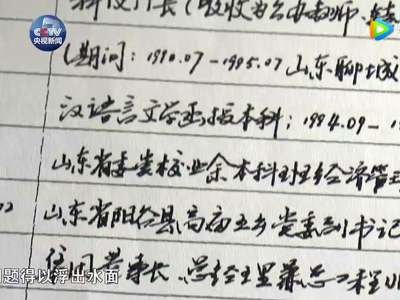 CCTV
央视新闻
科技厂长(
(期间:1990.07-1995.07 山东聊城
汉语言文学函授本科;1994.09-1
山东省委党校业余本科班经济管理
山东省阳谷县高庙王乡党委副书记
任国 董事长、总经理兼总工程师
问题得以浮出水面